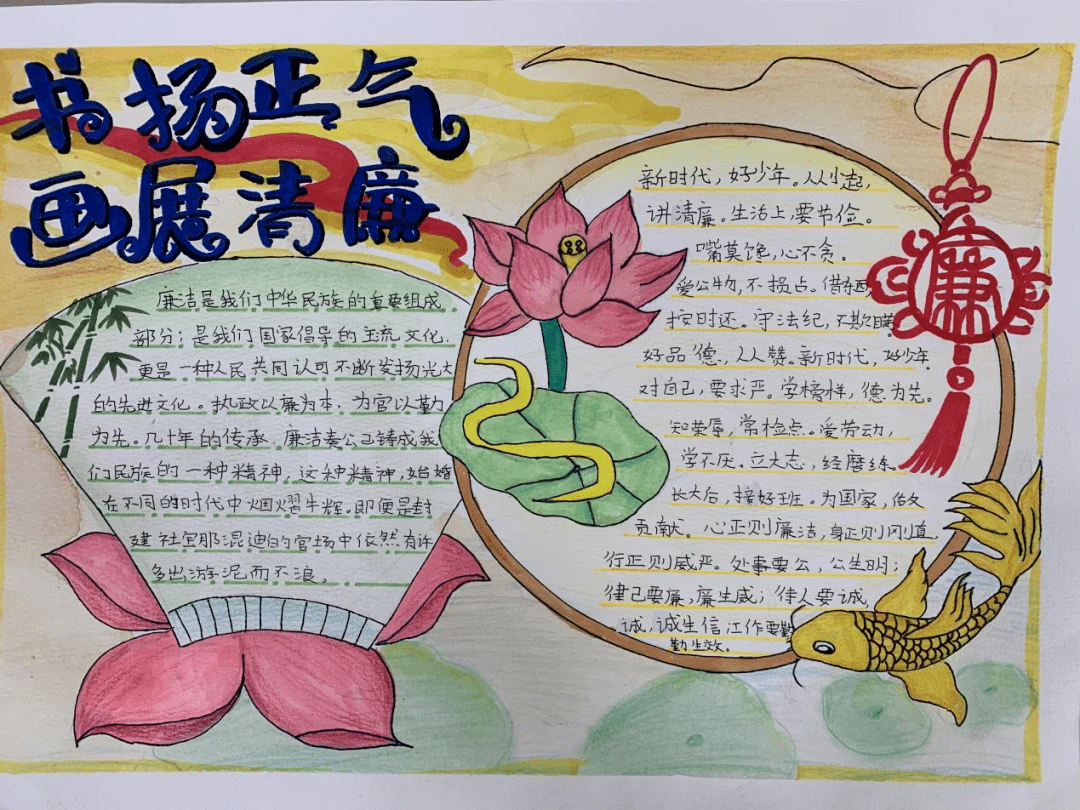 书扬正气
画展清廉
廉洁是我们中华民族的重要组成
部分；是我们国家倡导的主流文化.
更是一种人民共同认可不断发扬光大
的先进文化。执政以廉为本，为官以勤
为先。几十年的传承，廉洁奉公已铸成我
们民族的一种精神，这种精神，始
在不同的时代中熠牛辉。即便是封
建社那混迪的官场中依然有许
多出游泥而不浪。
新时代，好少年。从小起，
讲清廉。生活上，要节俭。
嘴莫馋，心不贪。
爱公物，不损点。借东西，
按时还。守法纪，不欺瞒。
好品德，人人赞。新时代，好少年
对自己，要求严。学榜样，德为先。
知荣辱，常检点。爱劳动，
学不厌。立大志，经磨练
长大后，接好班。为国家，做
贡献。心正则廉洁，身正则刚道，
行正则威严。处事要公，公生明；
律己要廉，廉生威；待人要诚，
诚，诚生信，工作要勤
勤生效。
廉